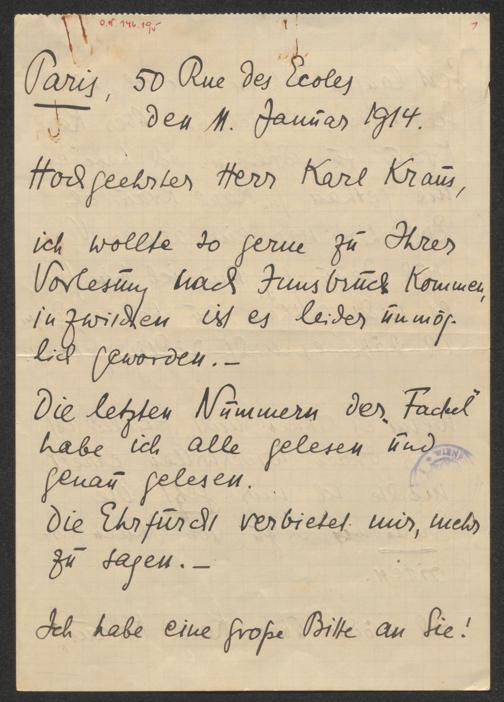 Paris, 50 Rue des Ecoles
den 11. Januar 1914.
Hochgeehrter Herr Karl Kraus,
ich wollte so gerne zu Ihrer
Vorlesung nach Innsbruck kommen,
inzwischen ist es leider unmög-
lich geworden. –
Die letzten Nummern der „Fackel"
habe ich alle gelesen und
genau gelesen.
Die Ehrfurcht verbietet mir, mehr
zu sagen. –
Ich habe eine große Bitte an Sie!
WIEN
1